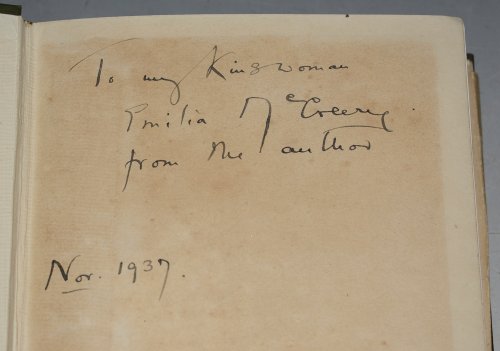 To my Kinswoman
Emilia McCreery.
from the author
Nov. 1937.